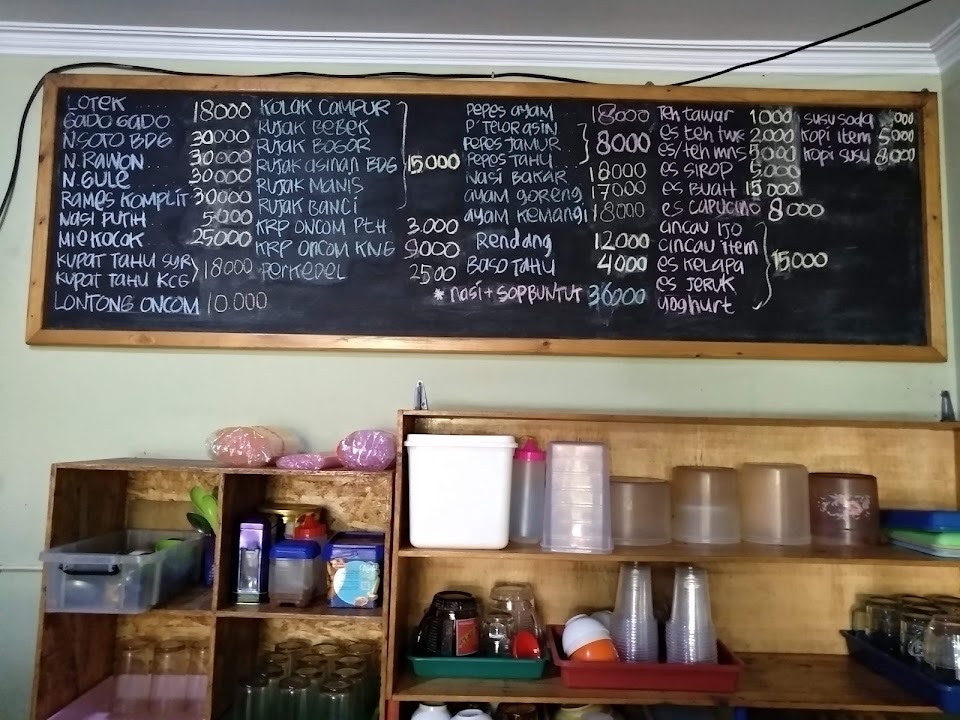 LOTEK ..... 18000
GADO GADO
N.SOTO BDG 30000
N.RAWON... 30000
N.GULE...... 30000
RAMES KOMPLIT 30000
NASI PUTIH 5000
MIE KOCOK 25000
KUPAT TAHU SYR
KUPAT TAHU KCG } 18000
LONTONG ONCOM 10.000
KOLAK CAMPUR
RUJAK BEBEK
RUJAK BOGOR
RUJAK ASINAN BDG
RUJAK MANIS
RUJAK BANCI
} 15000
KRP ONCOM PTH 3.000
KRP ONCOM KNG 9000
PERKEDEL 2500
PEPES AYAM 18000
P'TELOR ASIN
PEPES JAMUR
PEPES TAHU
} 8000
NASI BAKAR 18000
AYAM GORENG 17000
AYAM KEMANGI 18000
Rendang 12000
BASO TAHU 4000
* NASI + SOP BUNTUT 36000
Teh tawar 1000
es teh tws 2000
es/teh mns 5000
es SIROP 5000
es BUAH 15000
es CAPUCINO 8000
CINCAU IJO
CINCAU ITEM
es KELAPA
es JERUK
yoghurt
} 15000
susu soda
kopi item 5000
kopi susu 8000